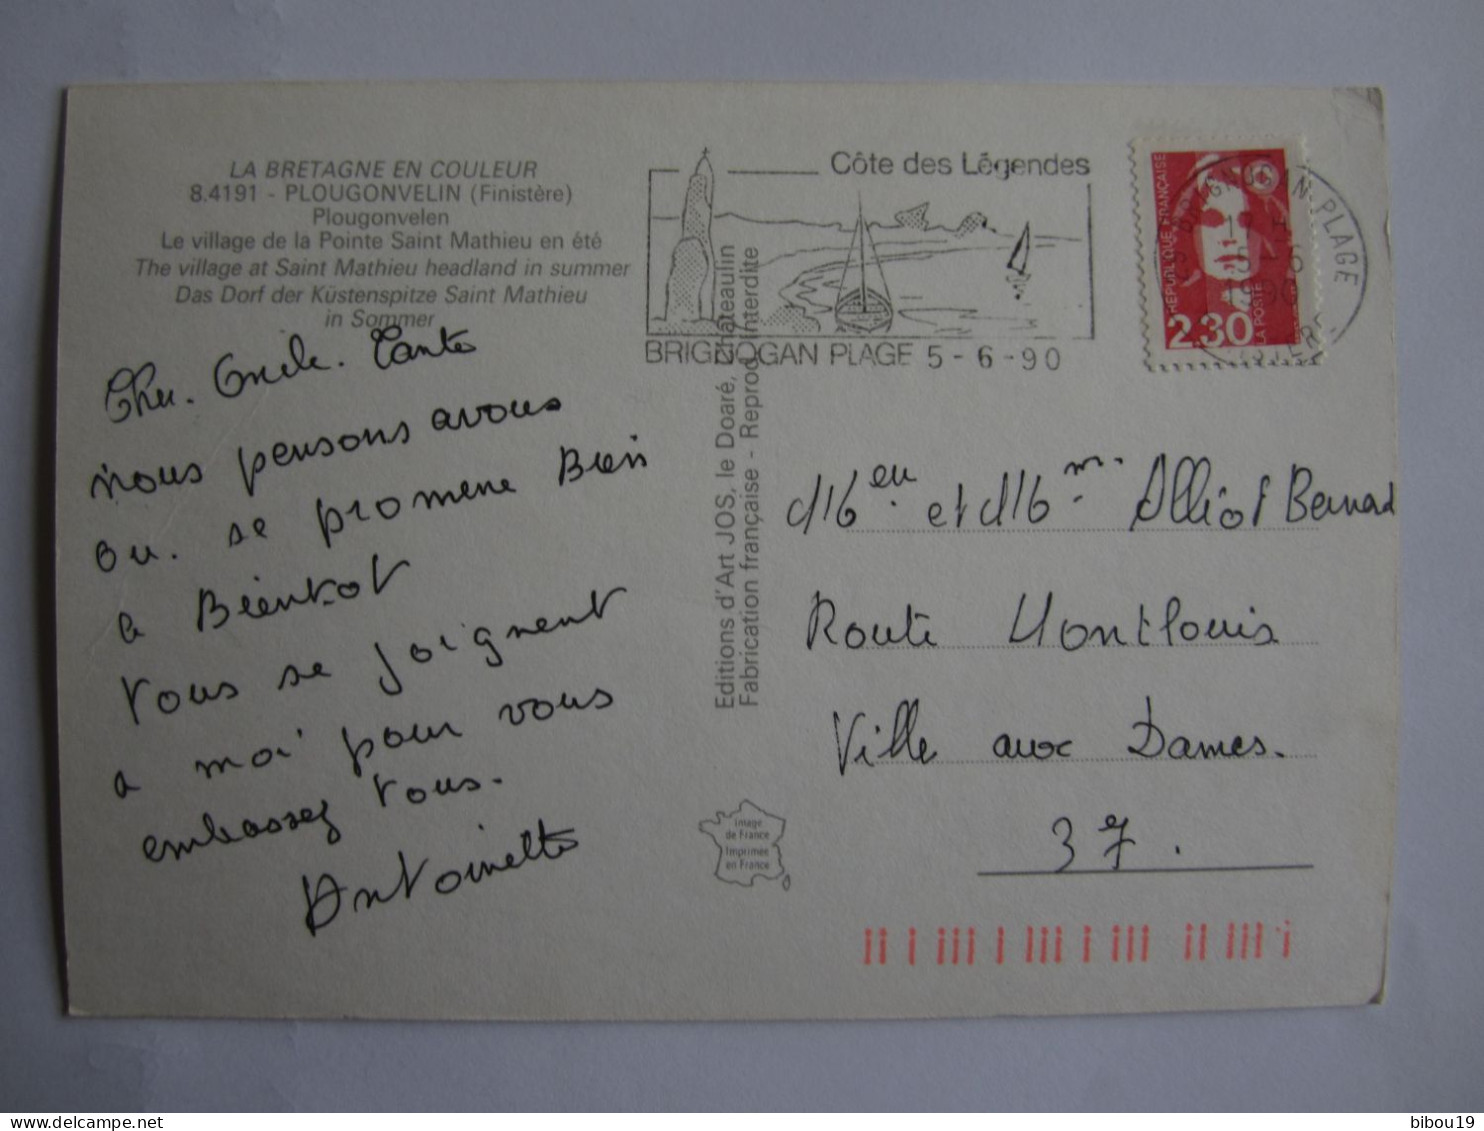 LA BRETAGNE EN COULEUR
8.4191 - PLOUGONVELIN (Finistère)
Plougonvelen
Le village de la Pointe Saint Mathieu en été
The village at Saint Mathieu headland in summer
Das Dorf der Küstenspitze Saint Mathieu
in Sommer
Cher. Oncle. Tante
nous pensons avous
ou. se promene Bien
a Bientot
Tous se joignent
a moi pour vous
embassez Tous.
Antoinette
Editions d'Art JOS, le Doaré, Châteaulin
Fabrication française - Reprod. interdite
Côte des Légendes
BRIGNOGAN PLAGE 5-6-90
RÉPUBLIQUE FRANÇAISE
2,30
LA POSTE
BRIGNOGAN PLAGE
5-6
1990
Meu et Mme Alliot Bernard
Route Montlouis
Ville aux Dames.
37.
Image
de France
Imprimée
en France
bibou19